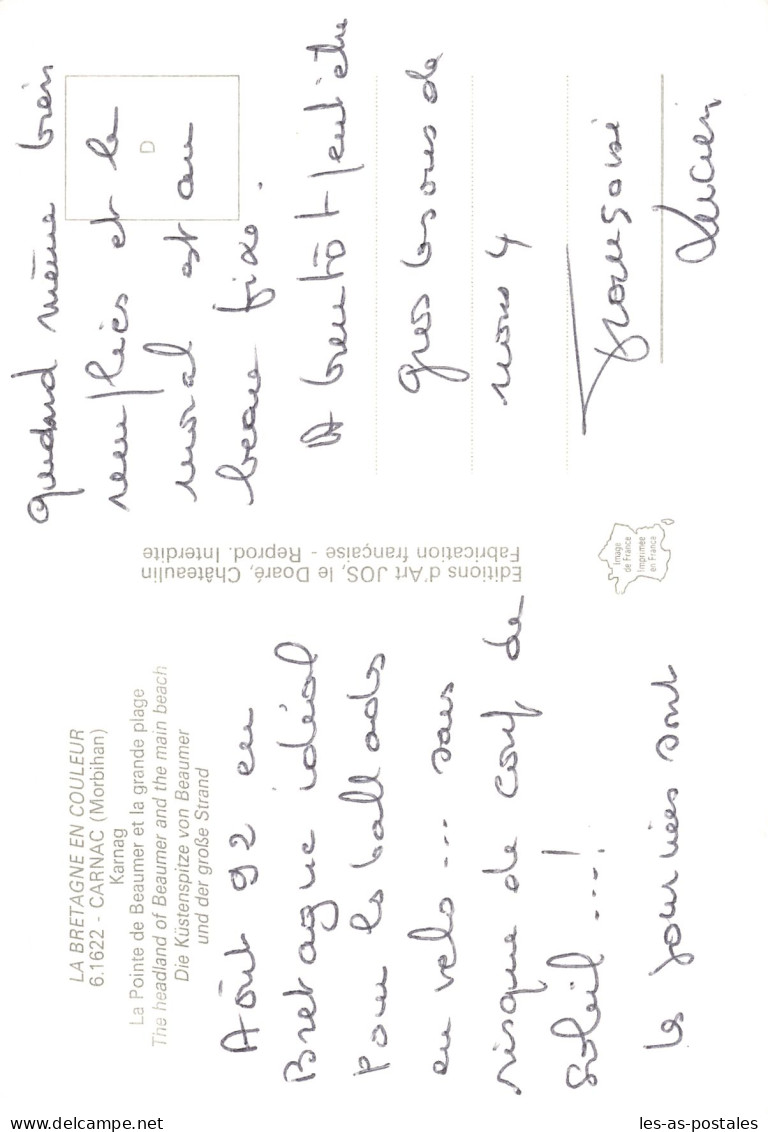 LA BRETAGNE EN COULEUR
6.1622 - CARNAC (Morbihan)
Karnag
La Pointe de Beaumer et la grande plage
The headland of Beaumer and the main beach
Die Küstenspitze von Beaumer
und der große Strand
Aôut 92 en
Bretagne idéal
pour les ballads
en velo --- sans
risque de coup de
Soleil ---!
les journées sont
Editions d'Art JOS, le Doaré, Châteaulin
Fabrication française - Reprod. Interdite
Image
de France
Imprimée
en France
D
quand même bien
remplies et le
moral est au
beau fixe.
A bientôt peut être
gros bisous de
nous 4
Françoise
Lucien
MARCOPHIL
les-as-postales